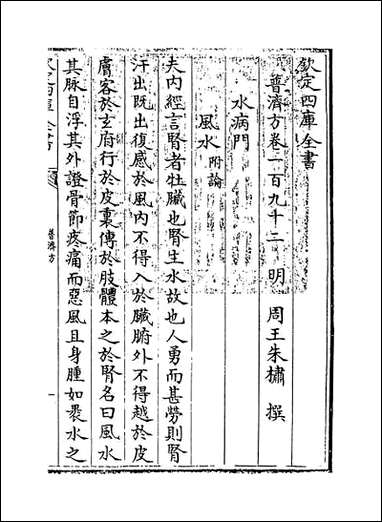 欽定四庫全書
普濟方卷一百九十二　明　周王朱橚　撰
水病門
風水附論
夫内經言腎者牡臟也腎生水故也人勇而甚勞則腎
汗出既出復感於風内不得入於臟腑外不得越於皮
膚客於玄府行於皮裏傳於肢體本之於腎名曰風水
其脉自浮其外證骨節疼痛而惡風且身腫如裹水之
普濟方
一